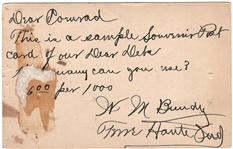 Dear Comrad
This is a sample Souvenir Post
card of our Dear Debs
many can you use?
6.00 per 1000
W M Bundy
Terre Haute Ind